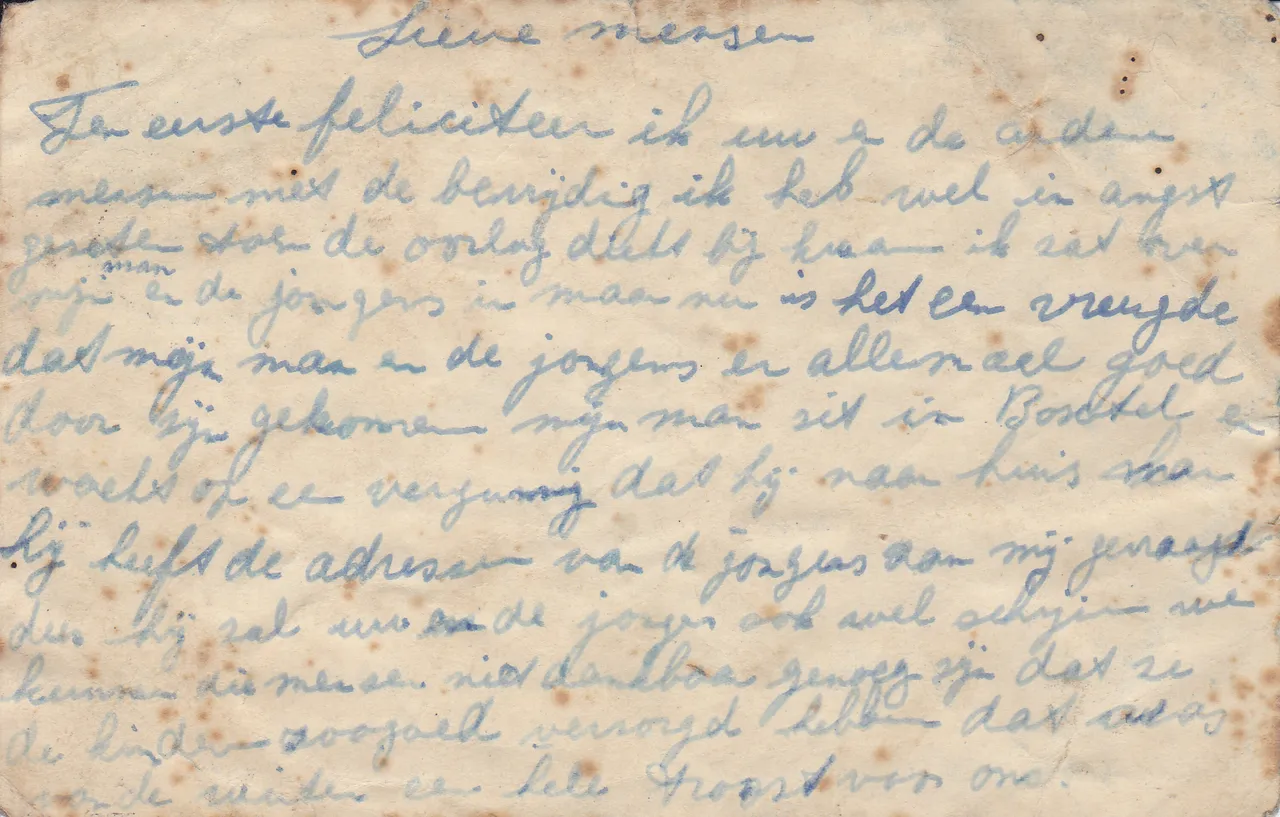 Lieve mensen
Ten eerste feliciteer ik uw en de andere
mensen met de bevrijdig ik heb wel in angst
geseten toen de oorlog dicht bij kwam ik sat over
mijn man en de jongens in maar nu is het een vreugde
dat mijn man en de jongens er allemael goed
door sijn gekomen mijn man sit in Boxtel en
wacht op een vergunnig dat hij naar huis man
hij heeft de adressen van de jongens aan mij gevraagt
dus hij sal uw en de jonges ook wel schrijven we
kunnen die mensen niet dankbaar genoeg sijn dat se
de kinderen soogoed versorgd hebben dat was
van de winter een hele troost voor ons.